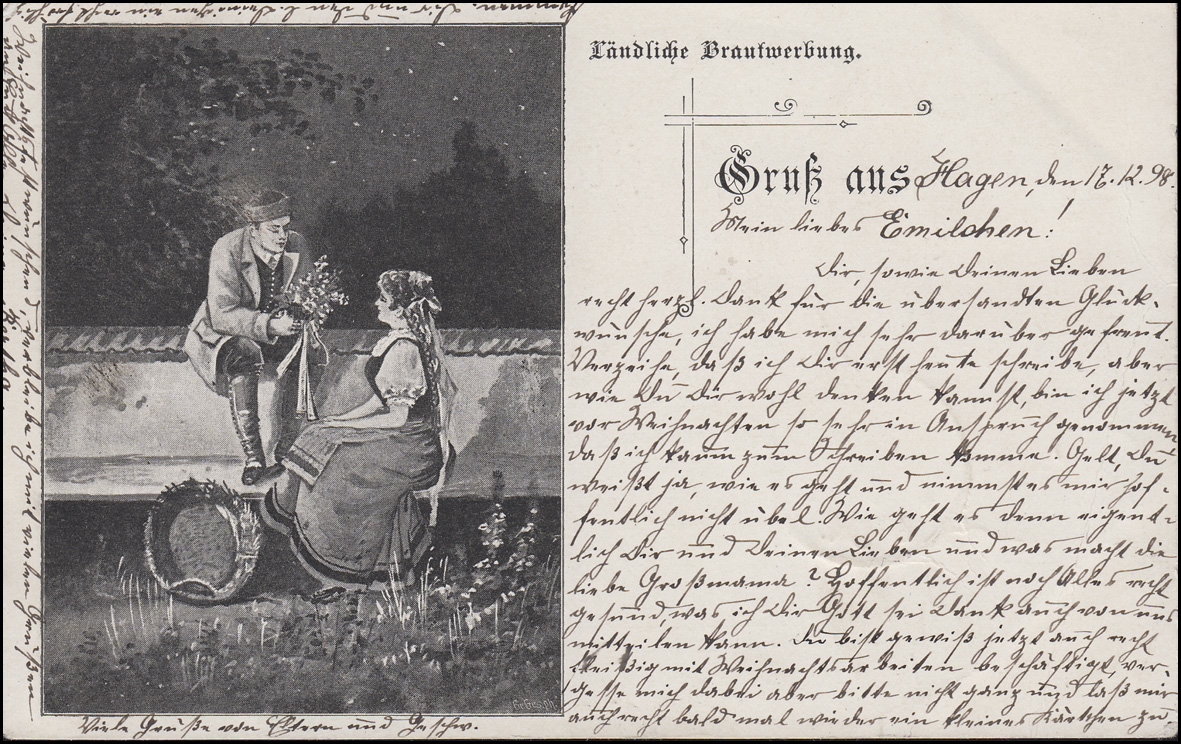 Ländliche Brautwerbung.
Gruß aus Hagen, den 17.12.98.
Mein liebes Emilchen!
Dir, sowie Deinen Lieben
recht herzl. Dank für die übersandten Glück-
wünsche, ich habe mich sehr darüber gefreut.
Verzeihe, daß ich Dir erst heute schreibe, aber
wie Du Dir wohl denken kannst, bin ich jetzt
vor Weihnachten so sehr in Anspruch genommen
daß ich kaum zum Schreiben komme. Gelt, Du
weißt ja, wie es geht und nimmst es mir hof-
fentlich nicht übel. Wie geht es denn eigent-
lich Dir und Deinen Lieben und was macht die
liebe Großmama? Hoffentlich ist noch Alles recht
gesund, was ich Dir Gott sei Dank auch von uns
mitteilen kann. Du bist gewiß jetzt auch recht
fleißig mit Weihnachtsarbeiten beschäftigt, ver-
gesse mich dabei aber bitte nicht ganz und laß mir
auch recht bald mal wieder ein kleines Kärtchen zu-
kommen. Dir und den l. Deinigen ein recht
Viele Grüße von Eltern und Geschw.